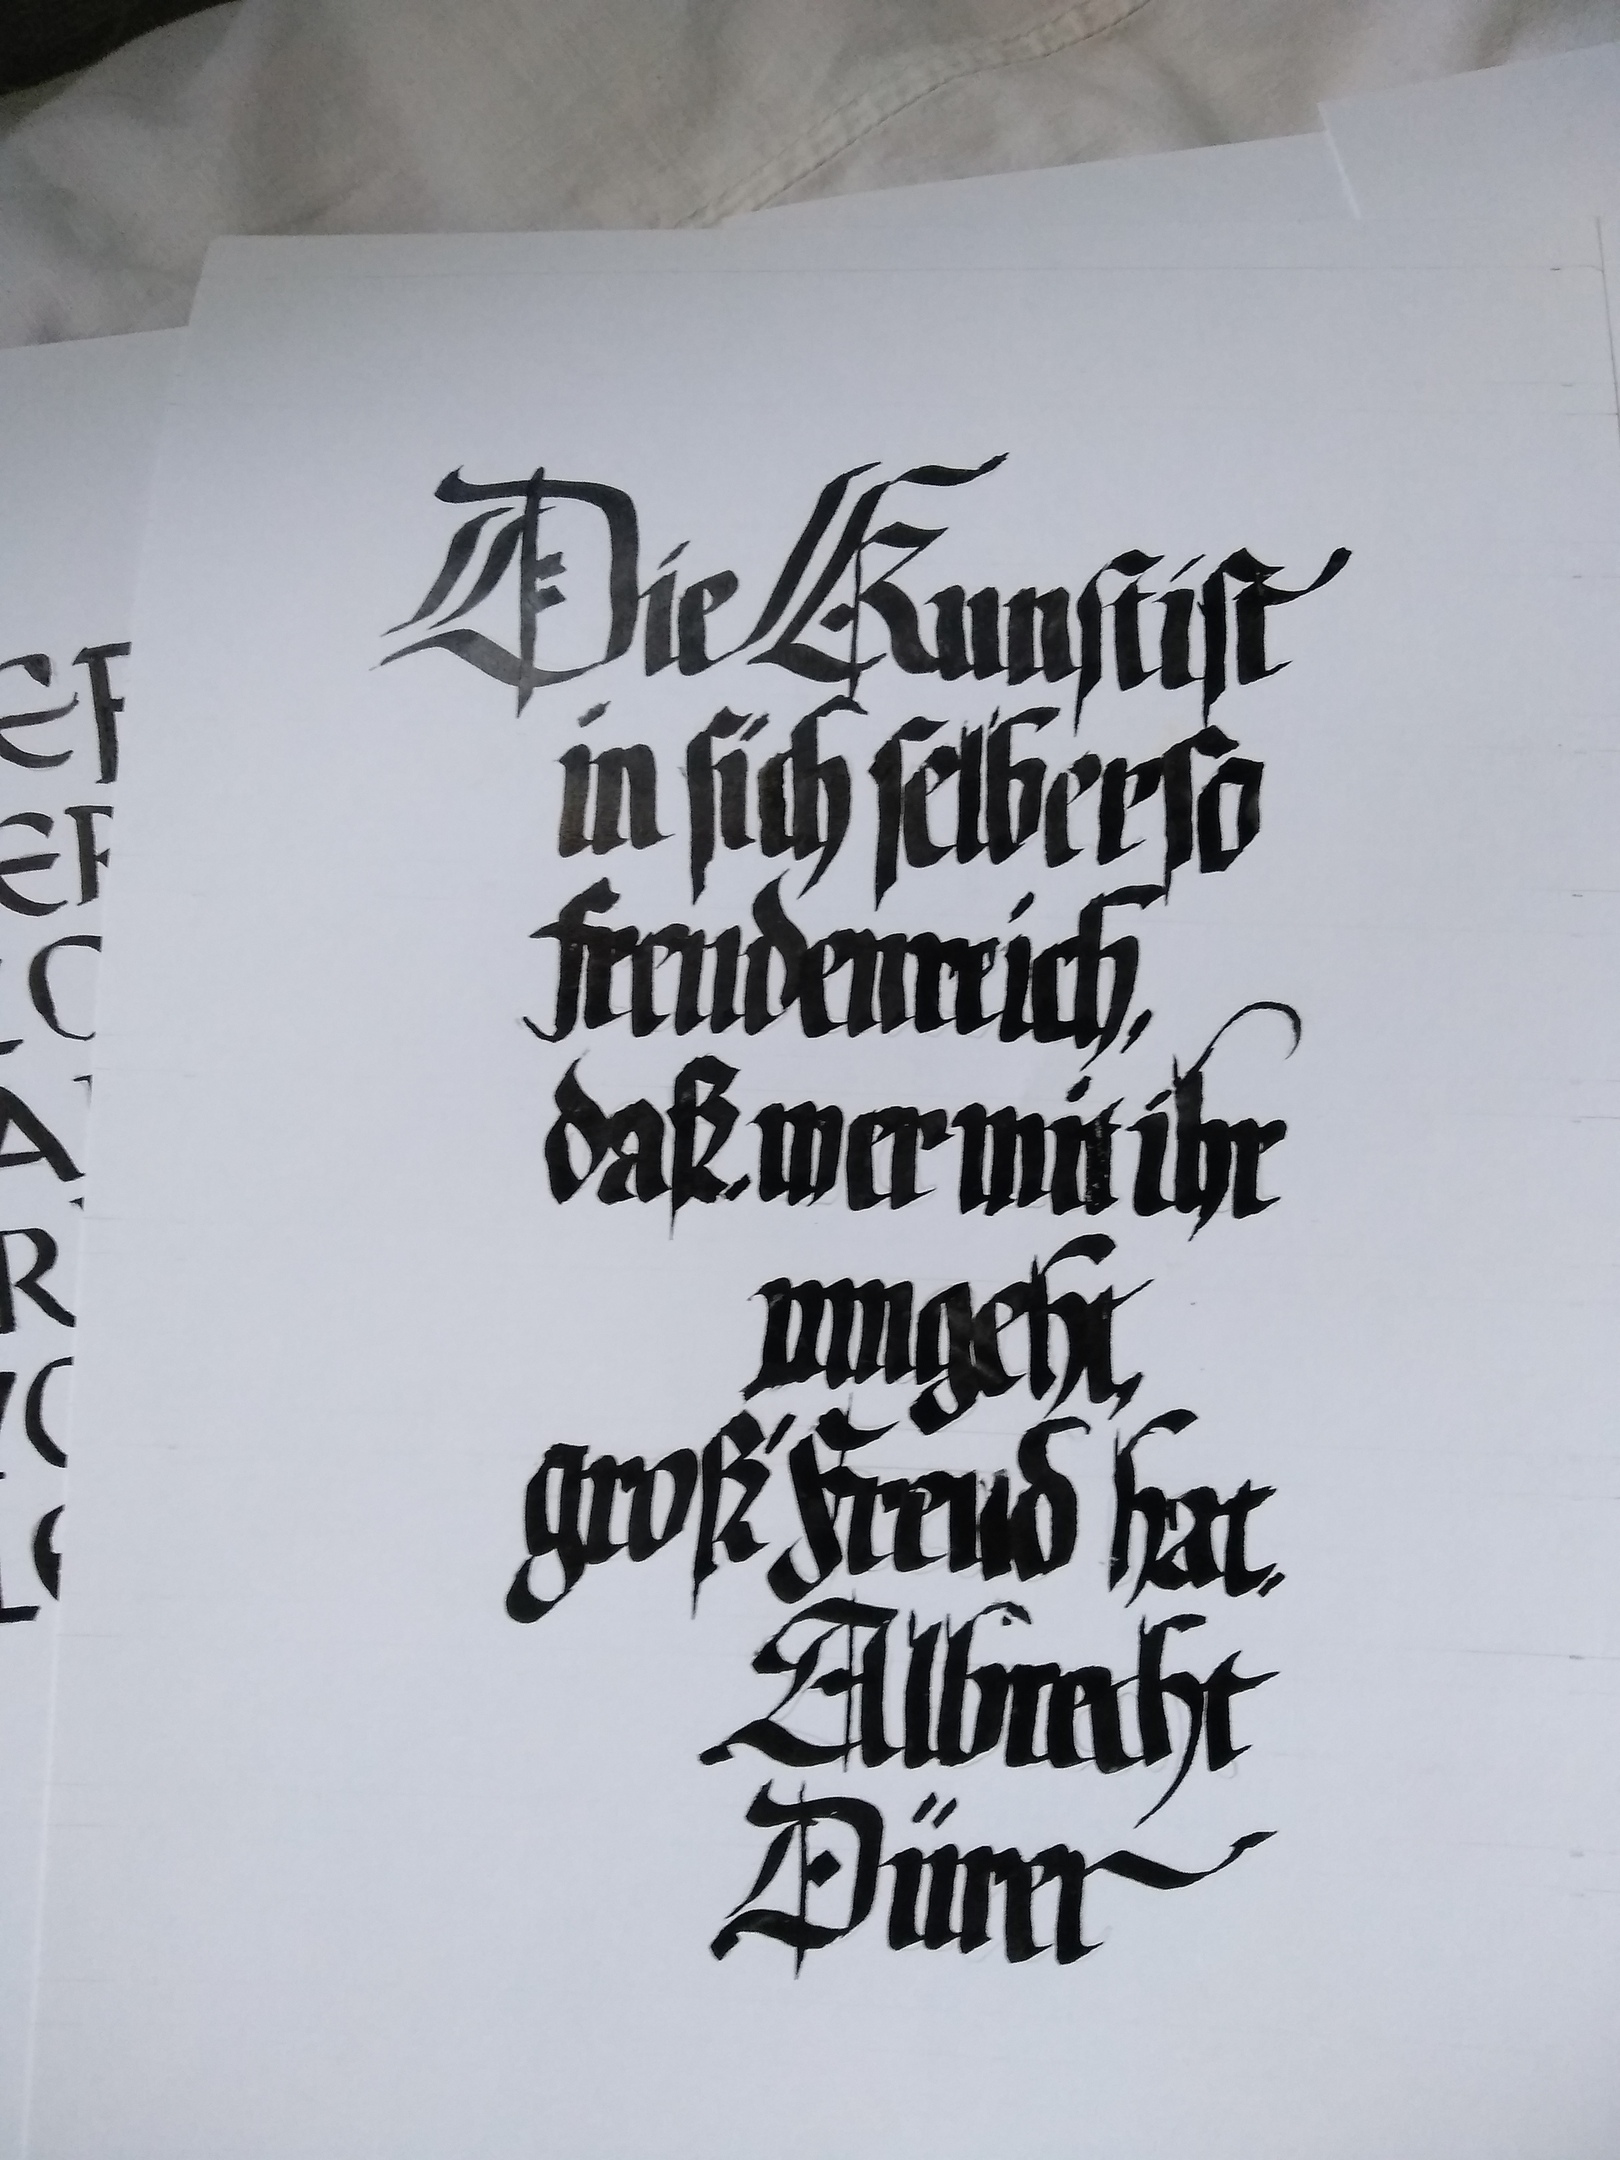 Die Kunst ist
in sich selber so
freudenreich,
daß, wer mit ihr
umgeht,
groß' Freud hat.
Albrecht
Dürer